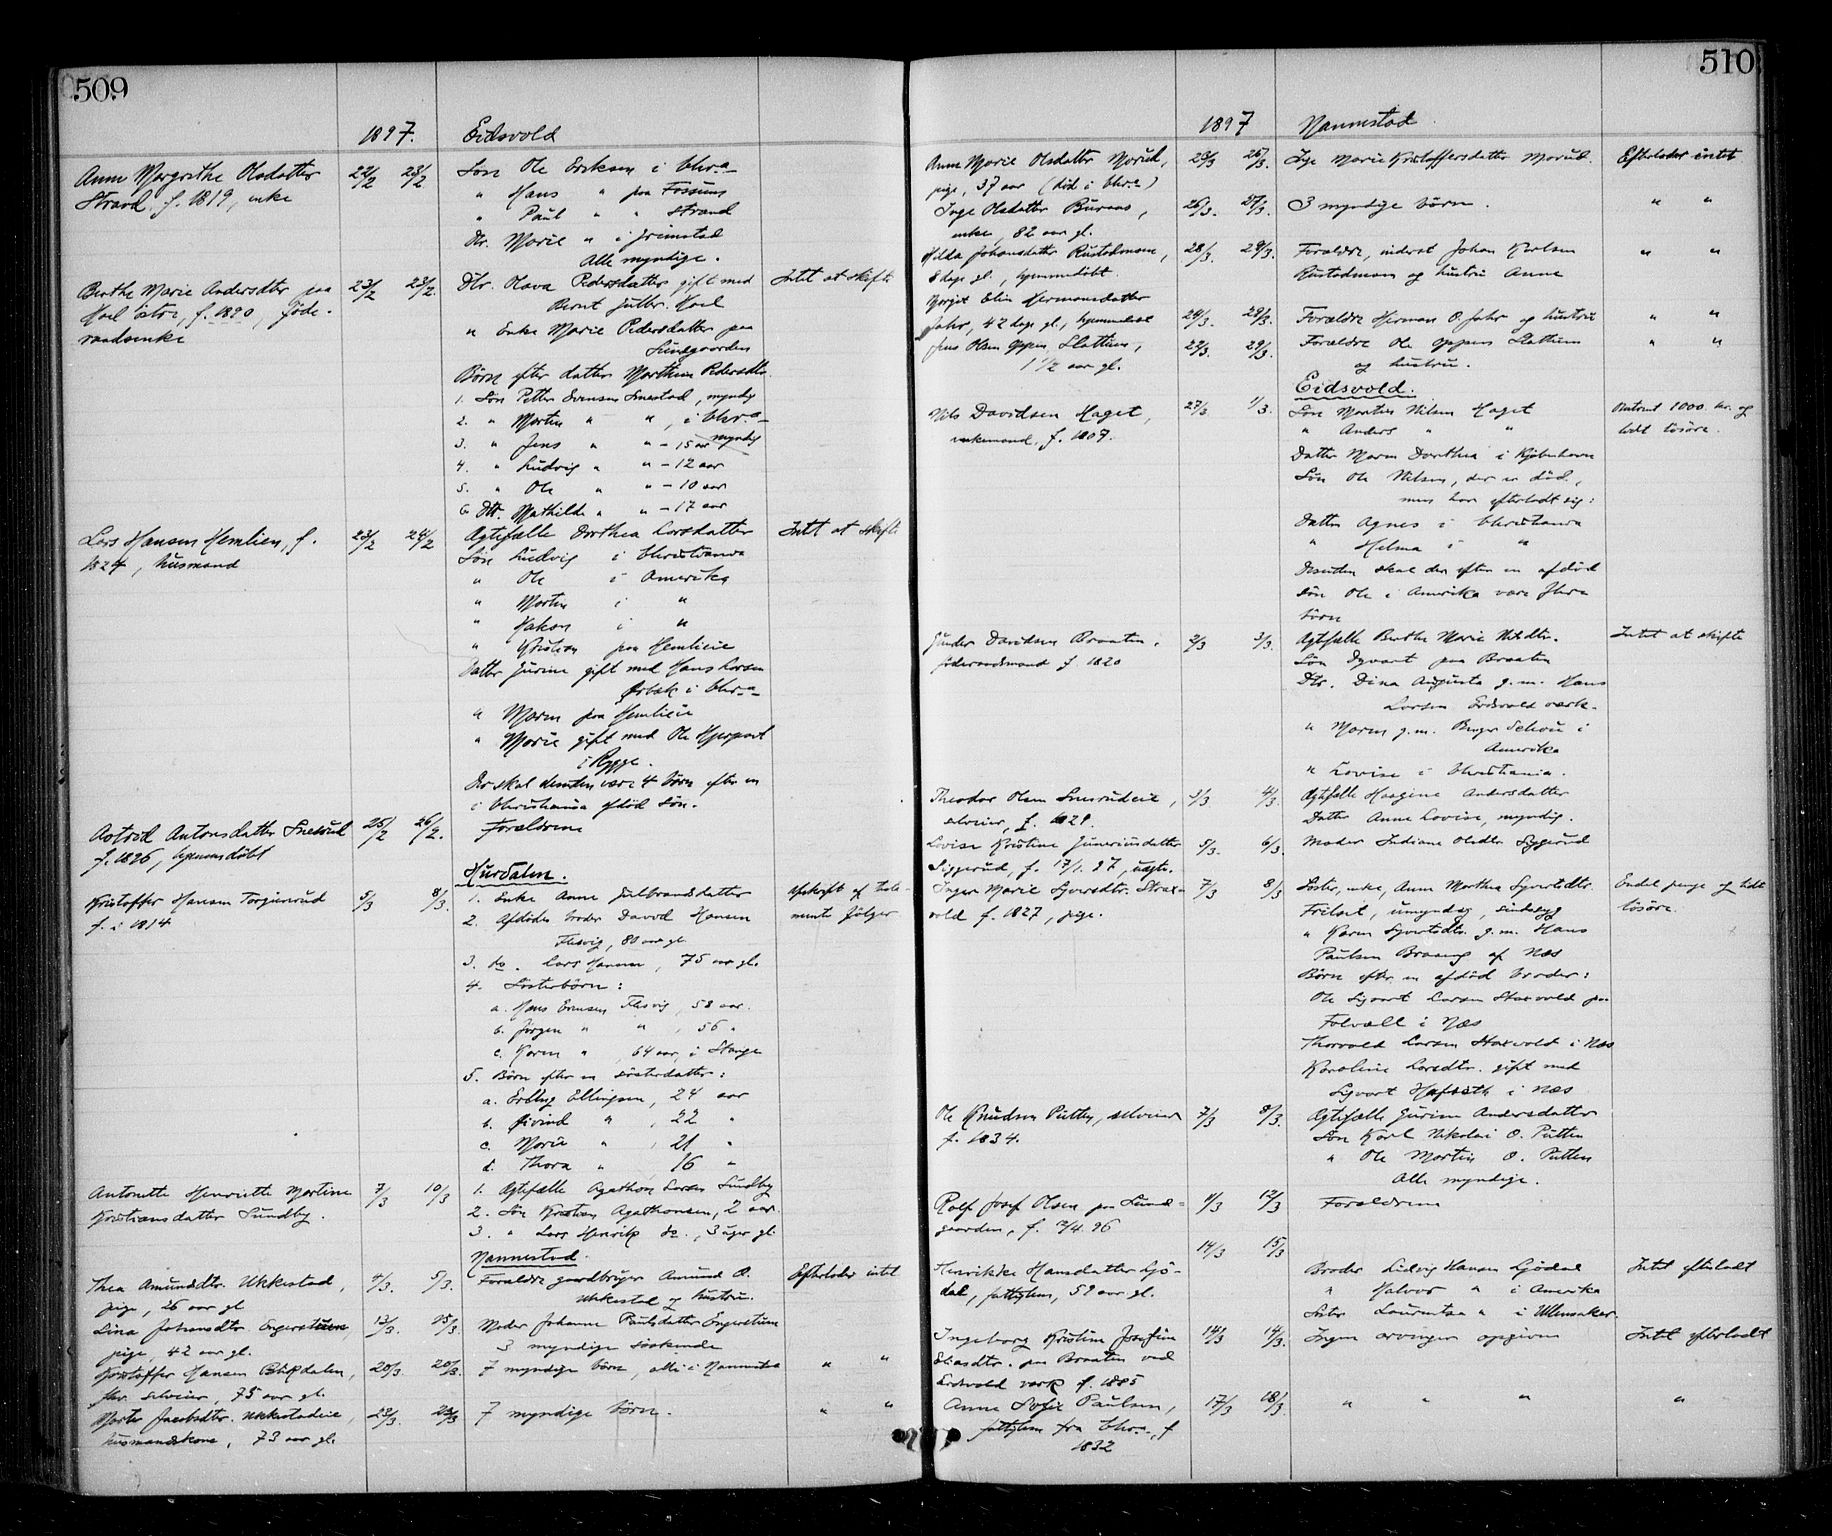 509
1897. Eidsvold
Anne Margrethe Olsdatter 22/2 23/2 Søn Ole Eriksen i Chr.a
Strand f. 1819, enke " Hans " paa Fossum
" Paul " " Strand
Dtr. Marie " i Grimstad
Alle myndige.
Berthe Marie Andersdtr paa 23/2 23/2. Dtr. Olava Pedersdatter gift med Intet at skifte
østre, f. 1820, Føde- Bernt Gulbr.
raadsenke " Enke Marie Pedersdatter paa
Lundgaarden
Børn efter datter Marthea Pedersdtr.
1. Søn Petter Svensen, myndig
2. " Martin " ", i Chr.a
myndig
3. " Jens " " – 15 aar
4. " Ludvig " " – 12 aar
5. " Ole " " – 10 aar
6. Dtr. Mathilde " " – 17 aar
Lars Hansen Hemlien, f. 23/2 24/2 Ægtefælle Dorthea Larsdatter Intet at skifte
1824, husmand Søn Ludvig i Christiania
" Ole i Amerika
" Martin i "
" Hakon i "
" Kristian paa Hemlieie
Datter Jurine gift med Hans Larsen
i Chr.a
" Maren paa Hemlieie
" Marie gift med Ole
i Rygge.
Der skal desuden være 4 børn efter en
i Christiania afdød søn.
Astrid Antonsdatter Snesrud 25/2 26/2. Forældrene
f. 1896, hjemmedøbt
Hurdalen.
Kristoffer Hansen Torgunrud 5/3 8/3. 1. Enke Anne Gulbrandsdatter Afskrift af testa-
f. i 1814 2. Afdødes broder David Hansen mente følger
Flesvig, 80 aar gl.
3. do. Lars Hansen, 75 aar gl.
4. Søsterbørn:
a. Hans Evensen Flesvig, 58 aar.
b. Jørgen " ", 56 "
c. Karen ", 64 aar, i Stange
5. Børn efter en søsterdatter:
a. Erling Ellingsen, 24 aar
b. Øivind ", 22 "
c. Marie ", 21 "
d. Thora ", 16 "
Antonette Henriette Martine 7/3 10/3 1. Ægtefælle Agathon Larsen Sundby
Kristiansdatter Sundby. 2. Søn Kristian Agathonsen, 2 aar.
3. " Lars Henrik do., 3 uger gl.
Nannestad.
Thea Amundsdtr. Ukkestad, 4/3. 5/3. Forældre gaardbruger Amund O. Efterlader intet
pige, 26 aar gl. Ukkestad og hustru.
Lina Johansdtr. Engerstuen, 13/3. 15/3. Moder Johanne Paulsdatter Engerstuen
pige, 42 aar gl. 3 myndige søskende
Kristoffer Hansen, 20/3. 20/3. 7 myndige børn, alle i Nannestad " "
selveier, 75 aar gl.
Marte Jacobsdtr. Ukkestadeie, 22/3. 23/3 7 myndige børn. " "
husmandskone, 73 aar gl.
510
1897 Nannestad.
Anne Marie Olsdatter Morud, 23/3 26/3. Inge Marie Kristoffersdatter Morud. Efterlader intet
pige, 37 aar (død i Chr.a)
Inge Olsdatter Buraas, 26/3. 27/3. 3 myndige børn. " "
enke, 82 aar gl.
Hilda Johansdatter Rustadmoen, 28/3. 29/3. Forældre, inderst Johan Karlsen " "
8 dage gl., hjemmedøbt. Rustadmoen og hustru Anne
Margit Elin Hermansdatter
Jahr, 42 dage gl., hjemmedøbt 24/3. 28/3. Forældre Herman O. Jahr og hustru " "
Jens Olsen Slattum, 22/3. 29/3. Forældre Ole Slattum " "
1 1/2 aar gl. og hustru.
Eidsvold.
Nils Davidsen Haget, 27/3 1/3. Søn Martin Nilsen Haget Antaget 1000 kr. og
enkemand, f. 1807. " Anders " " lidt løsøre.
Datter Maren Dorthea i Kjøbenhavn
Søn Ole Nilsen, der er død,
men har efterladt sig:
Datter Agnes i Christiania
" Helma i "
Desuden skal der efter en afdød
søn Ole i Amerika være flere
børn
Gunder Davidsen Braaten, 2/3 3/3. Ægtefælle Berthe Marie Nilsdtr. Intet at skifte
føderaadsmand f. 1820 Søn paa Braaten
Dtr. Dina Augusta g.m. Hans
Larsen Eidsvold værk.
" Maren g.m. Birger Schou i
Amerika
" Lovise i Christiania.
Theodor Olsen Snesrudeie, 3/3 4/3. Ægtefælle Haagine Andersdatter
selveier, f. 1829. Datter Anne Lovise, myndig.
Lovise Kristine Gunneriusdatter 5/3. 6/3. Moder Indiane Olsdtr. Siggerud
Siggerud, f. 17/1. 97, uægte.
Inger Marie Syversdtr. Stax- 7/3 8/3 Søster, enke, Anne Marthea Syversdtr. Endel penge og lidt
vold f. 1827, pige. Frilset, umyndig, sindssyg løsøre.
" Karen Syversdtr. g.m. Hans
Paulsen af Næs
Børn efter en afdød broder:
Ole Sigvart Larsen Staxvold paa
i Næs
Thorvald Larsen Staxvold i Næs
Karoline Larsdtr. gift med
Sigvart Hofseth i Næs
Ole Knudsen Putten, selveier 7/3 8/3. Ægtefælle Jurine Andersdatter
f. 1834. Søn Karl Nikolai O. Putten
" Ole Martin O. Putten
Alle myndige.
Rolf Josef Olsen paa Lund- 11/3 12/3 Forældrene
gaarden, f. 2/4. 96
14/3 15/3
Henrikke Hansdatter Gjø- Broder Ludvig Hansen Gjødal Intet efterladt
dal, fattiglem, 59 aar gl. " Halvor " i Amerika
Søster Laurentse " i Ullensaker.
Ingeborg Kristine Josefine 14/3 14/3. Ingen arvinger opgivne Intet efterladt
Eliasdtr. paa Braaten ved
Eidsvold værk f. 1885
Anne Sofie Paulsen, 17/3 18/3. " " " "
fattiglem fra Chr.a, f
1832